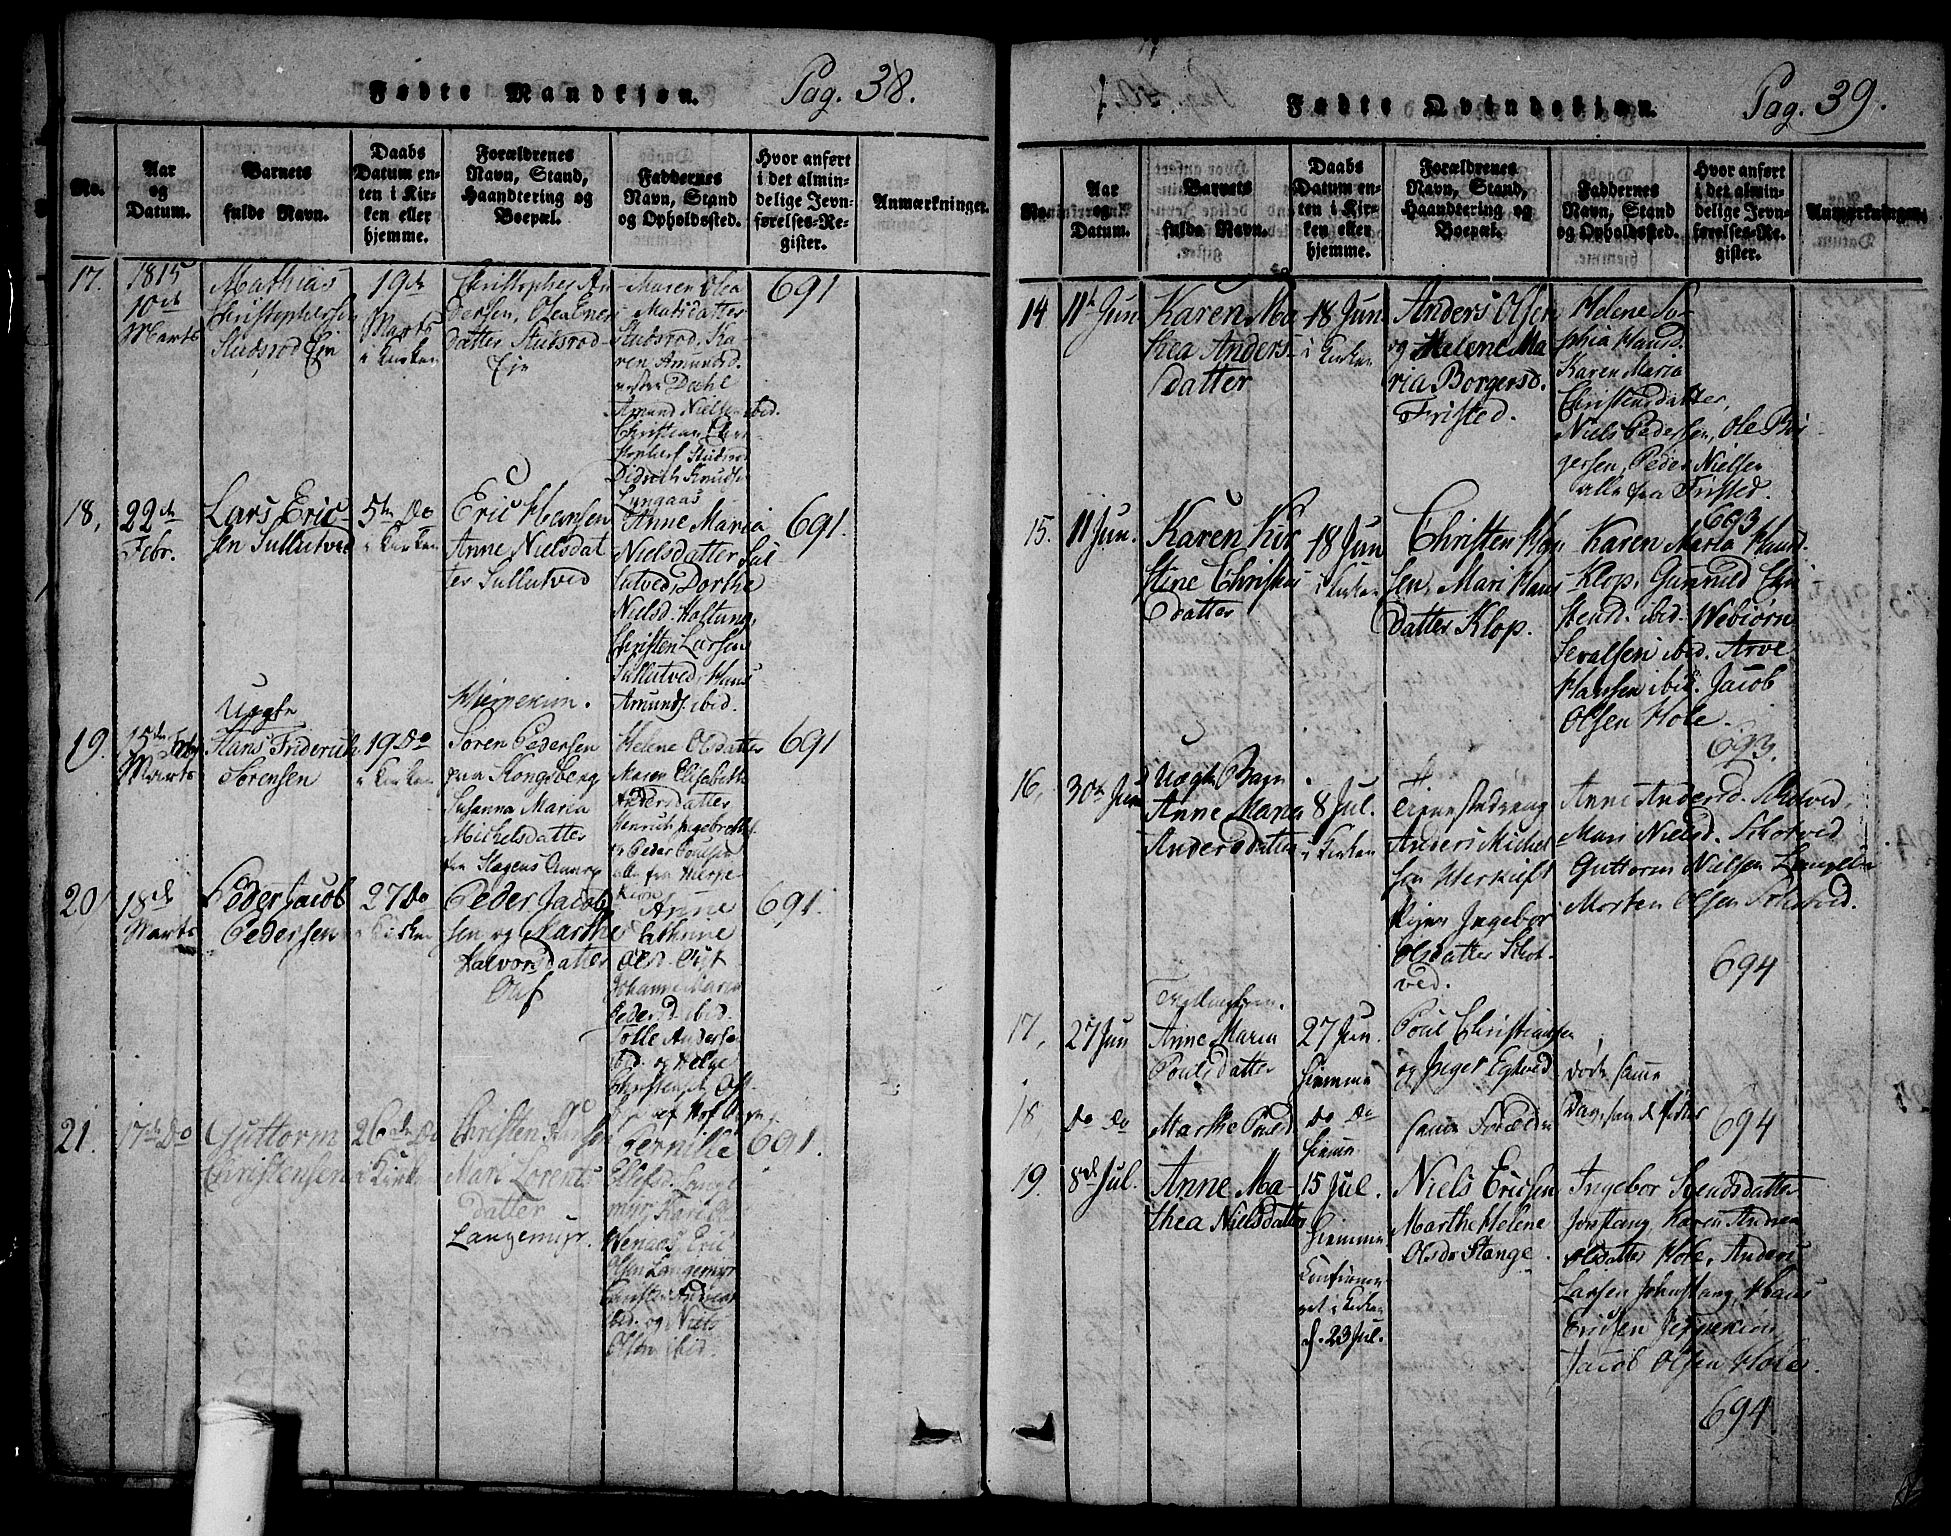 Fødte Mandkjøn. Pag. 38.
No.
Aar
og
Datum.
Barnets
fulde Navn.
Daabs
Datum en-
ten i Kir-
ken eller
hjemme.
Forældrenes
Navn, Stand,
Haandtering og
Boepæl.
Faddernes
Navn, Stand
og Opholdssted.
Hvor anført
i det almin-
delige Jevn-
førelses-Re-
gister.
Anmærkninger.
17.
1815
10de
Marts
Mathias
Christophersen
Studsrød Eje
19de
Marts
i Kirken
Christopher An
dersen,
datter Studsrød
Eje
Maren Olea
Matisdatter
Studsrød, Ka-
ren Amundsd.
Dahl
Amund Nielsen ibid.
Christian Chri-
stophers. Studsrød
Didrich Knuds.
Lyngaas
691
18,
22de
Febr.
Lars Eric-
sen Sullutved
5te Do
i Kirken
Eric Hansen
Anne Nielsdat
ter Sullutved
Anne Maria
Nielsdatter Sul
lutved, Dorthe
Nielsd. Haltung,
Christen Larsen
Sullutved, Hans
Amunds. ibid.
691.
19.
15de
Marts
Uægte
Hans Friderich
Sørensen
19 Do
i Kirken
Hierpekiøn.
Søren Pedersen
fra Kongsberg
Susanna Maria
Michelsdatter
fra Slagens Annex
Helene Olsdatter
Maren Elisabeth
Andersdatter
Henrich Ingebretsen
og Peder Poulsen
alle fra Hierpe
kiøn
691
20,
18de
Marts
Peder Jacob
Pedersen
27 Do
i Kirken
Peder Jacob
sen og Marthe
Halvorsdatter
Anne
Cathrine
Olsd.
Johanne Maria
Pedersd. ibid.
Tolle Anderse
ibid. og Helge
Christensen
691.
21.
17de Do
Guttorm
Christensen
26de Do
i Kirken
Christen Hansen
Mari Lorents
datter
Langemyr.
Pernille
Ellefsd. Lange
myr, Kari
Wenaas, Eric
Olsen Langemyr
Carsten Andreas
ibid. og Niels
Olsen ibid.
691.
Fødte Qvindekjøn. Pag. 39.
No.
Aar
og
Datum.
Barnets
fulde Navn.
Daabs
Datum en-
ten i Kir-
ken eller
hjemme.
Forældrenes
Navn, Stand,
Haandtering og
Boepæl.
Faddernes
Navn, Stand
og Opholdssted.
Hvor anført
i det almin-
delige Jevn-
førelses-Re-
gister.
Anmærkninger.
14
11te Jun
Karen Ma
thea Anders-
datter
18 Jun
i Kirken
Anders Olsen
og Helene Ma
ria Borgersd.
Fristed.
Helene So-
phia Hansd.
Karen Maria
Christensdatter,
Niels Pedersen, Ole Bir
gersen, Peder Nielsen
alle fra Fristed.
693
15.
11 Jun.
Karen Kir
stine Christens
datter
18 Jun
i Kirken
Christen Han
sen, Mari Hans
datter Klop.
Karen Maria Hansd.
Klop, Gunnild Chri
stensd. ibid. Webiørn
Sevalsen ibid. Arve
Hansen ibid. Jacob
Olsen Hole.
693.
16,
30te Jun
Uægte Barn
Anne Maria
Andersdatter
8 Jul.
i Kirken
Tienestedreng
Anders Michel
sen
Pigen Ingebor
Olsdatter Skot-
ved.
Anne Andersd. Skotved,
Mari Nielsd. Skotved
Guttorm Nielsen
Morten Olsen Skotved.
694
17,
27 Jun
Tvillingbørn.
Anne Maria
Poulsdatter
27 Jun.
hiemme
Poul Christiansen
og Inger Egtved
døde samme
Dag som de fødtes
18,
do do
Marthe Poulsd
do do
hiemme
samme Forældre
694
19.
8de Jul.
Anne Ma-
thea Nielsdatter
15 Jul.
hiemme
Confirme-
ret i Kirken
d. 23 Jul.
Niels Ericsen
Marthe Helene
Olsdr Stange.
Ingebor Svendsdatter
Jonstang Karen Andrea
Olsdatter Hole, Anders
Larsen Johnstang, Hans
Ericsen Jerpekiøn,
Jacob Olsen Hole.
694.